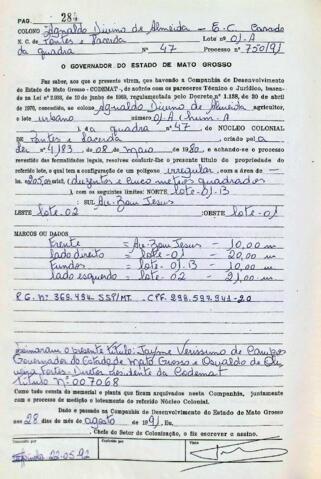 PAG. 284
COLONO Agnaldo Divino de Almeida - E.C. Casado
N. C. de Pontes e Lacerda Lote nº 01-A
da quadra Nº 47 Processo nº 750/91
O GOVERNADOR DO ESTADO DE MATO GROSSO
Faz saber, aos que o presente virem, que havendo a Companhia de Desenvolvimento
do Estado de Mato Grosso - CODEMAT -, de acôrdo com os pareceres Técnico e Jurídico, basean-
do na Lei nº 2.908, de 10 de junho de 1969, regulamentado pelo Decreto Nº 1.138, de 30 de abril
de 1970, concedido, ao colono Agnaldo Divino de Almeida agricultor,
o lote urbano nº 01-A (hum-A
) da quadra nº 47 DO NÚCLEO COLONIAL
DE Pontes e Lacerda criado pela
Lei nº 4.183 de 08 de maio de 1980, e achando-se o processo
revestido das formalidades legais, resolveu conferir-lhe o presente título de propriedade do
referido lote, o qual tem a configuração de um polígono irregular, com a área de
205,00 m2, (duzentos e cinco metros quadrados
), com os seguintes limites: NORTE lote-01-B
SUL Av. Bom Jesus
LESTE lote-02 OESTE lote-01
MARCOS OU DADOS
Frente = Av. Bom Jesus - 10,00 m
lado direito = lote-01 - 20,00 m
Fundos = lote-01-B - 10,00 m
lado esquerdo = lote-02 - 21,00 m
R.G. Nº 369.494 SSP/MT. CPF.
Assinaram o presente título: Jayme Verissimo de Campos
Governador do Estado de Mato Grosso e Osvaldo de Oli
veira Fortes - Diretor Presidente da Codemat
Título Nº 007068
Tudo como consta do memorial e planta que ficam arquivados nesta Companhia, juntamente
com o processo de medição e loteamento do referido Núcleo Colonial.
Dado e passado na Companhia de Desenvolvimento do Estado de Mato Grosso
aos 28 dias do mês de agosto de 1991. Eu,
Chefe do Setor de Colonização, o fiz escrever e assino.
22-05-92